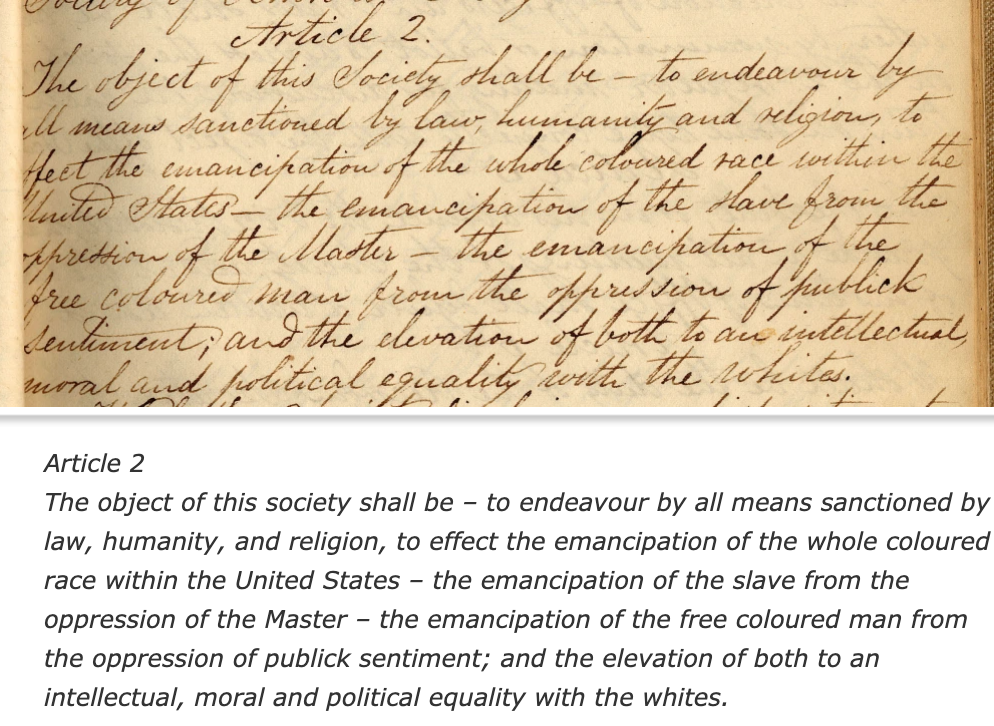 Society of
Article 2.
The object of this Society shall be – to endeavour by
all means sanctioned by law, humanity and religion, to
effect the emancipation of the whole coloured race within the
United States – the emancipation of the slave from the
oppression of the Master – the emancipation of the
free coloured man from the oppression of publick
sentiment; and the elevation of both to an intellectual,
moral and political equality with the whites.
Article 2
The object of this society shall be – to endeavour by all means sanctioned by
law, humanity, and religion, to effect the emancipation of the whole coloured
race within the United States – the emancipation of the slave from the
oppression of the Master – the emancipation of the free coloured man from
the oppression of publick sentiment; and the elevation of both to an
intellectual, moral and political equality with the whites.